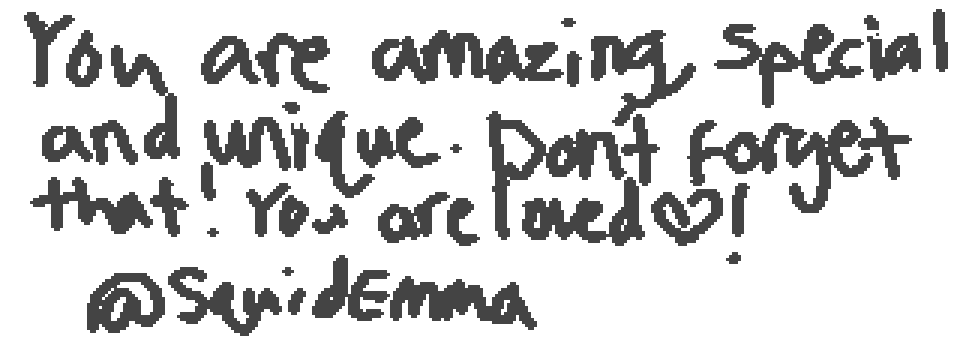 You are amazing, special
and unique. Don't forget
that! You are loved♡!
@SquidEmma